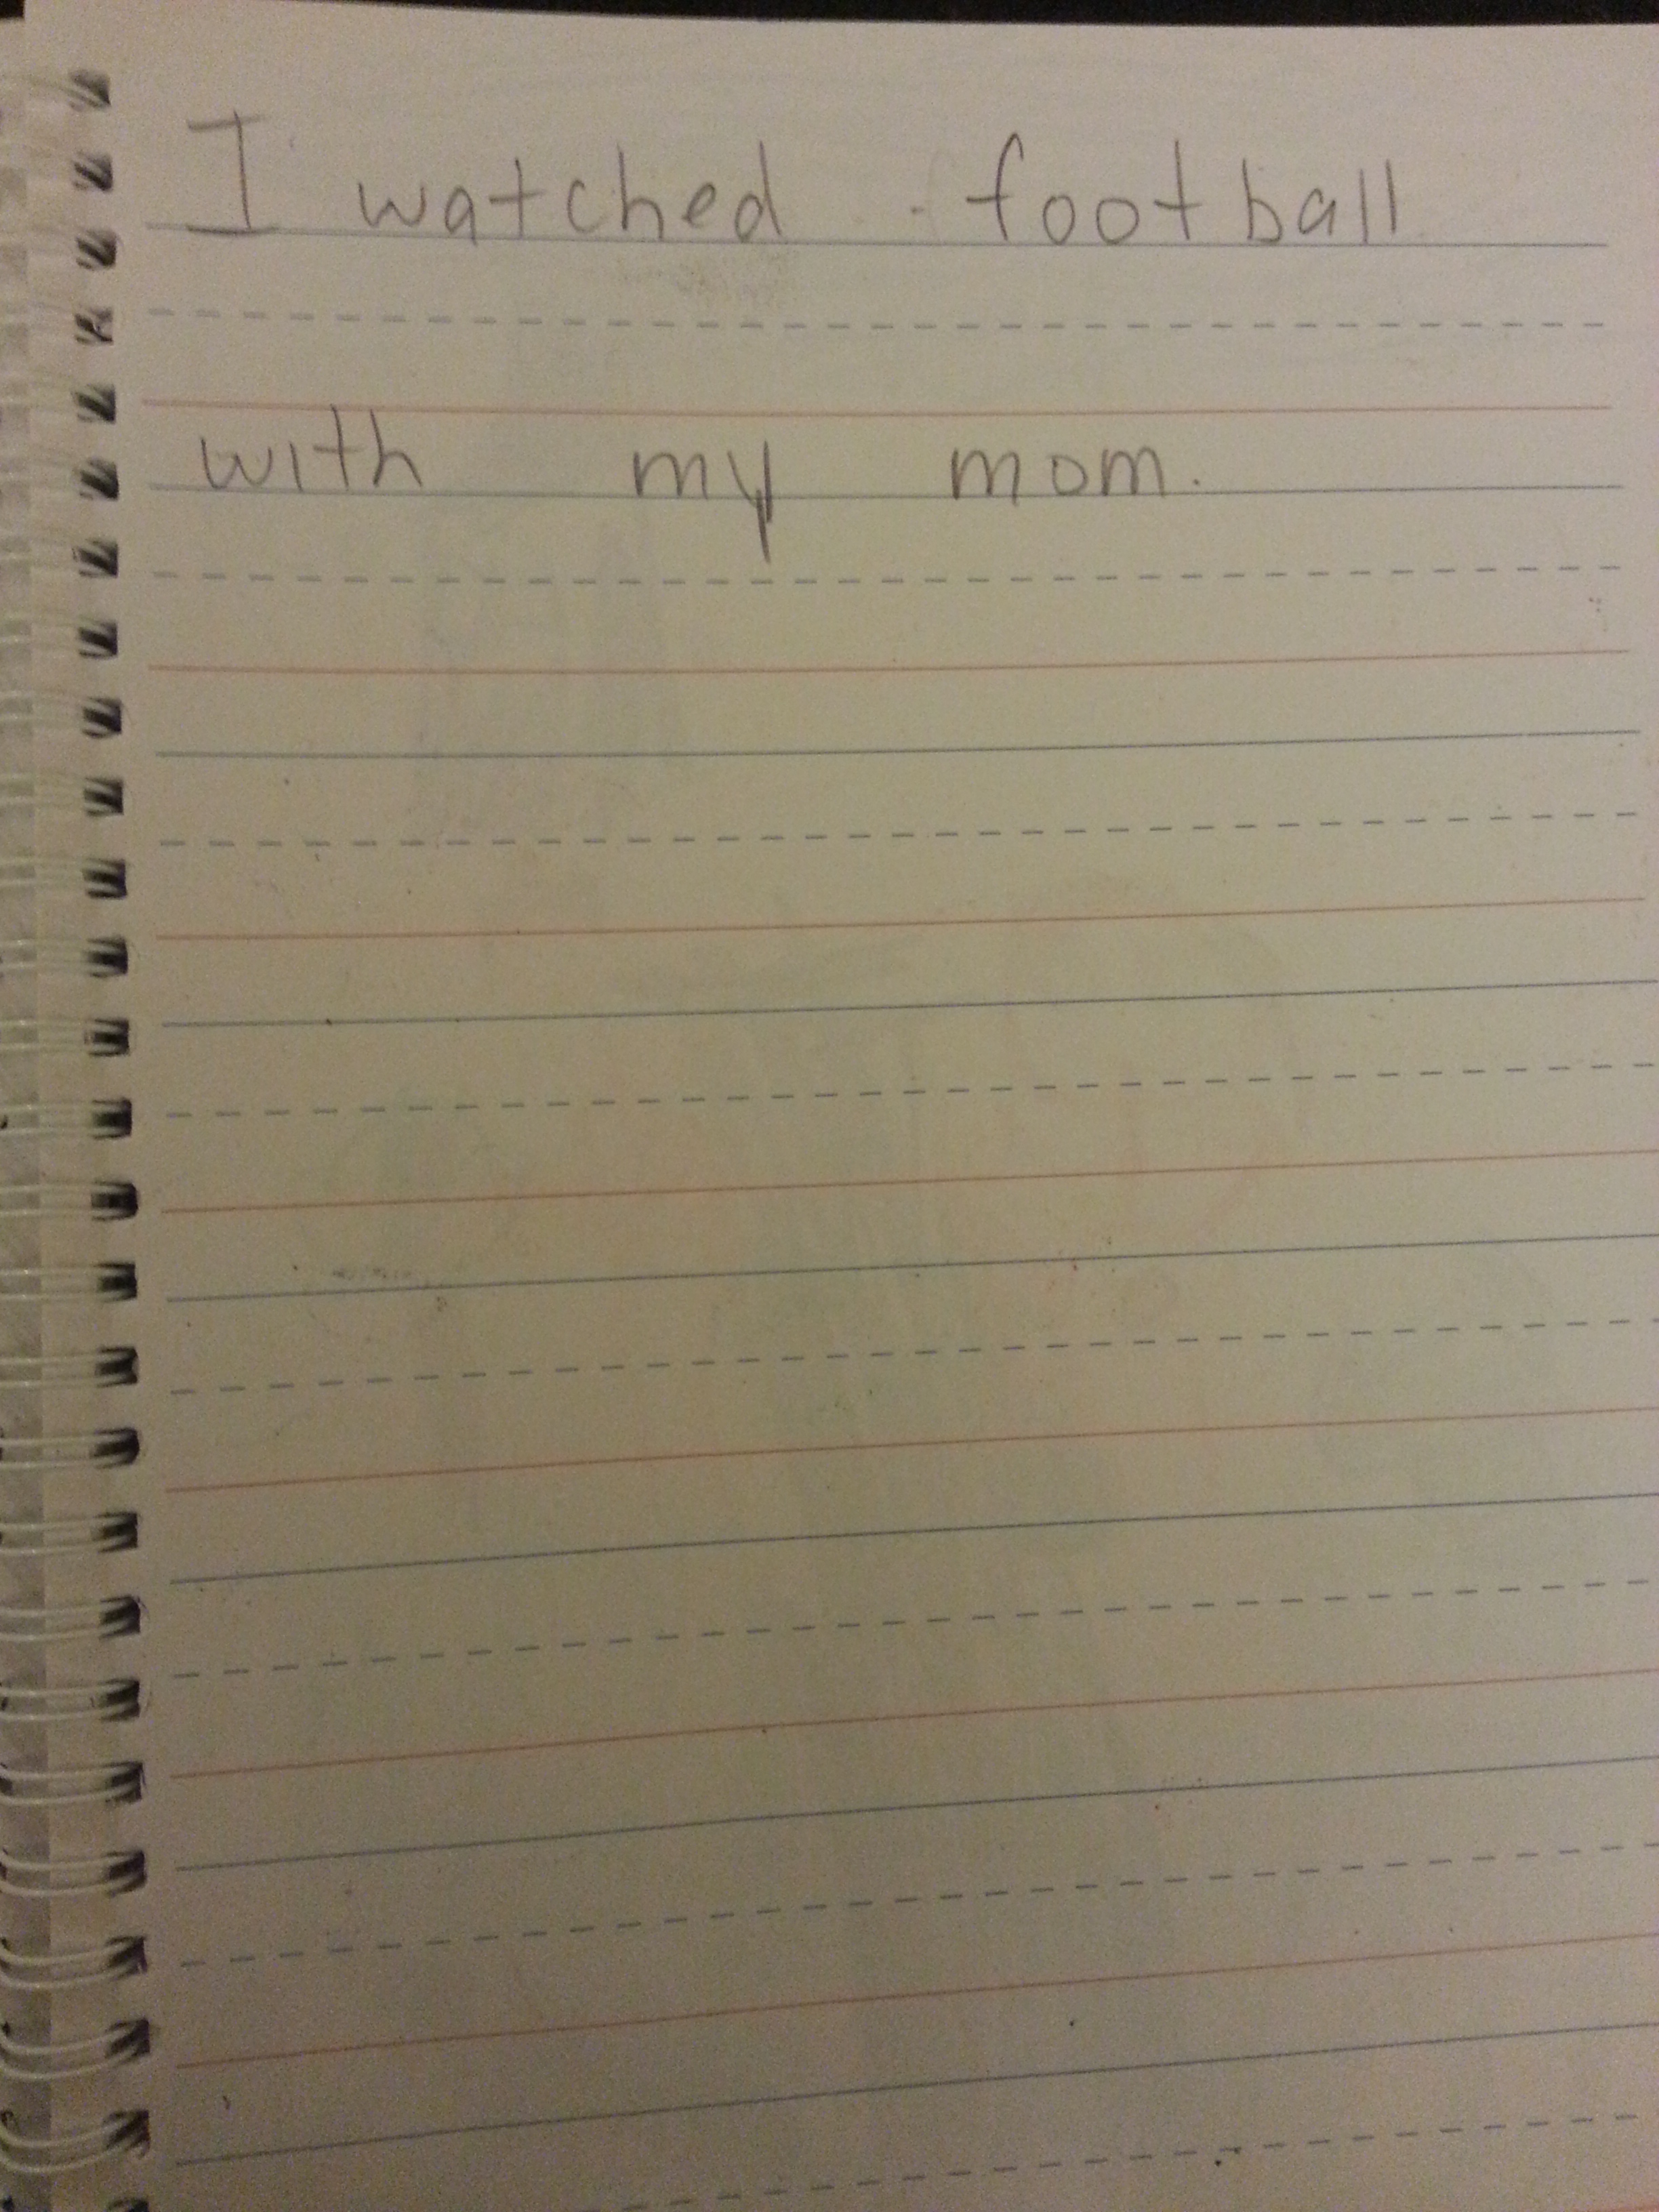 I watched football
with my mom.